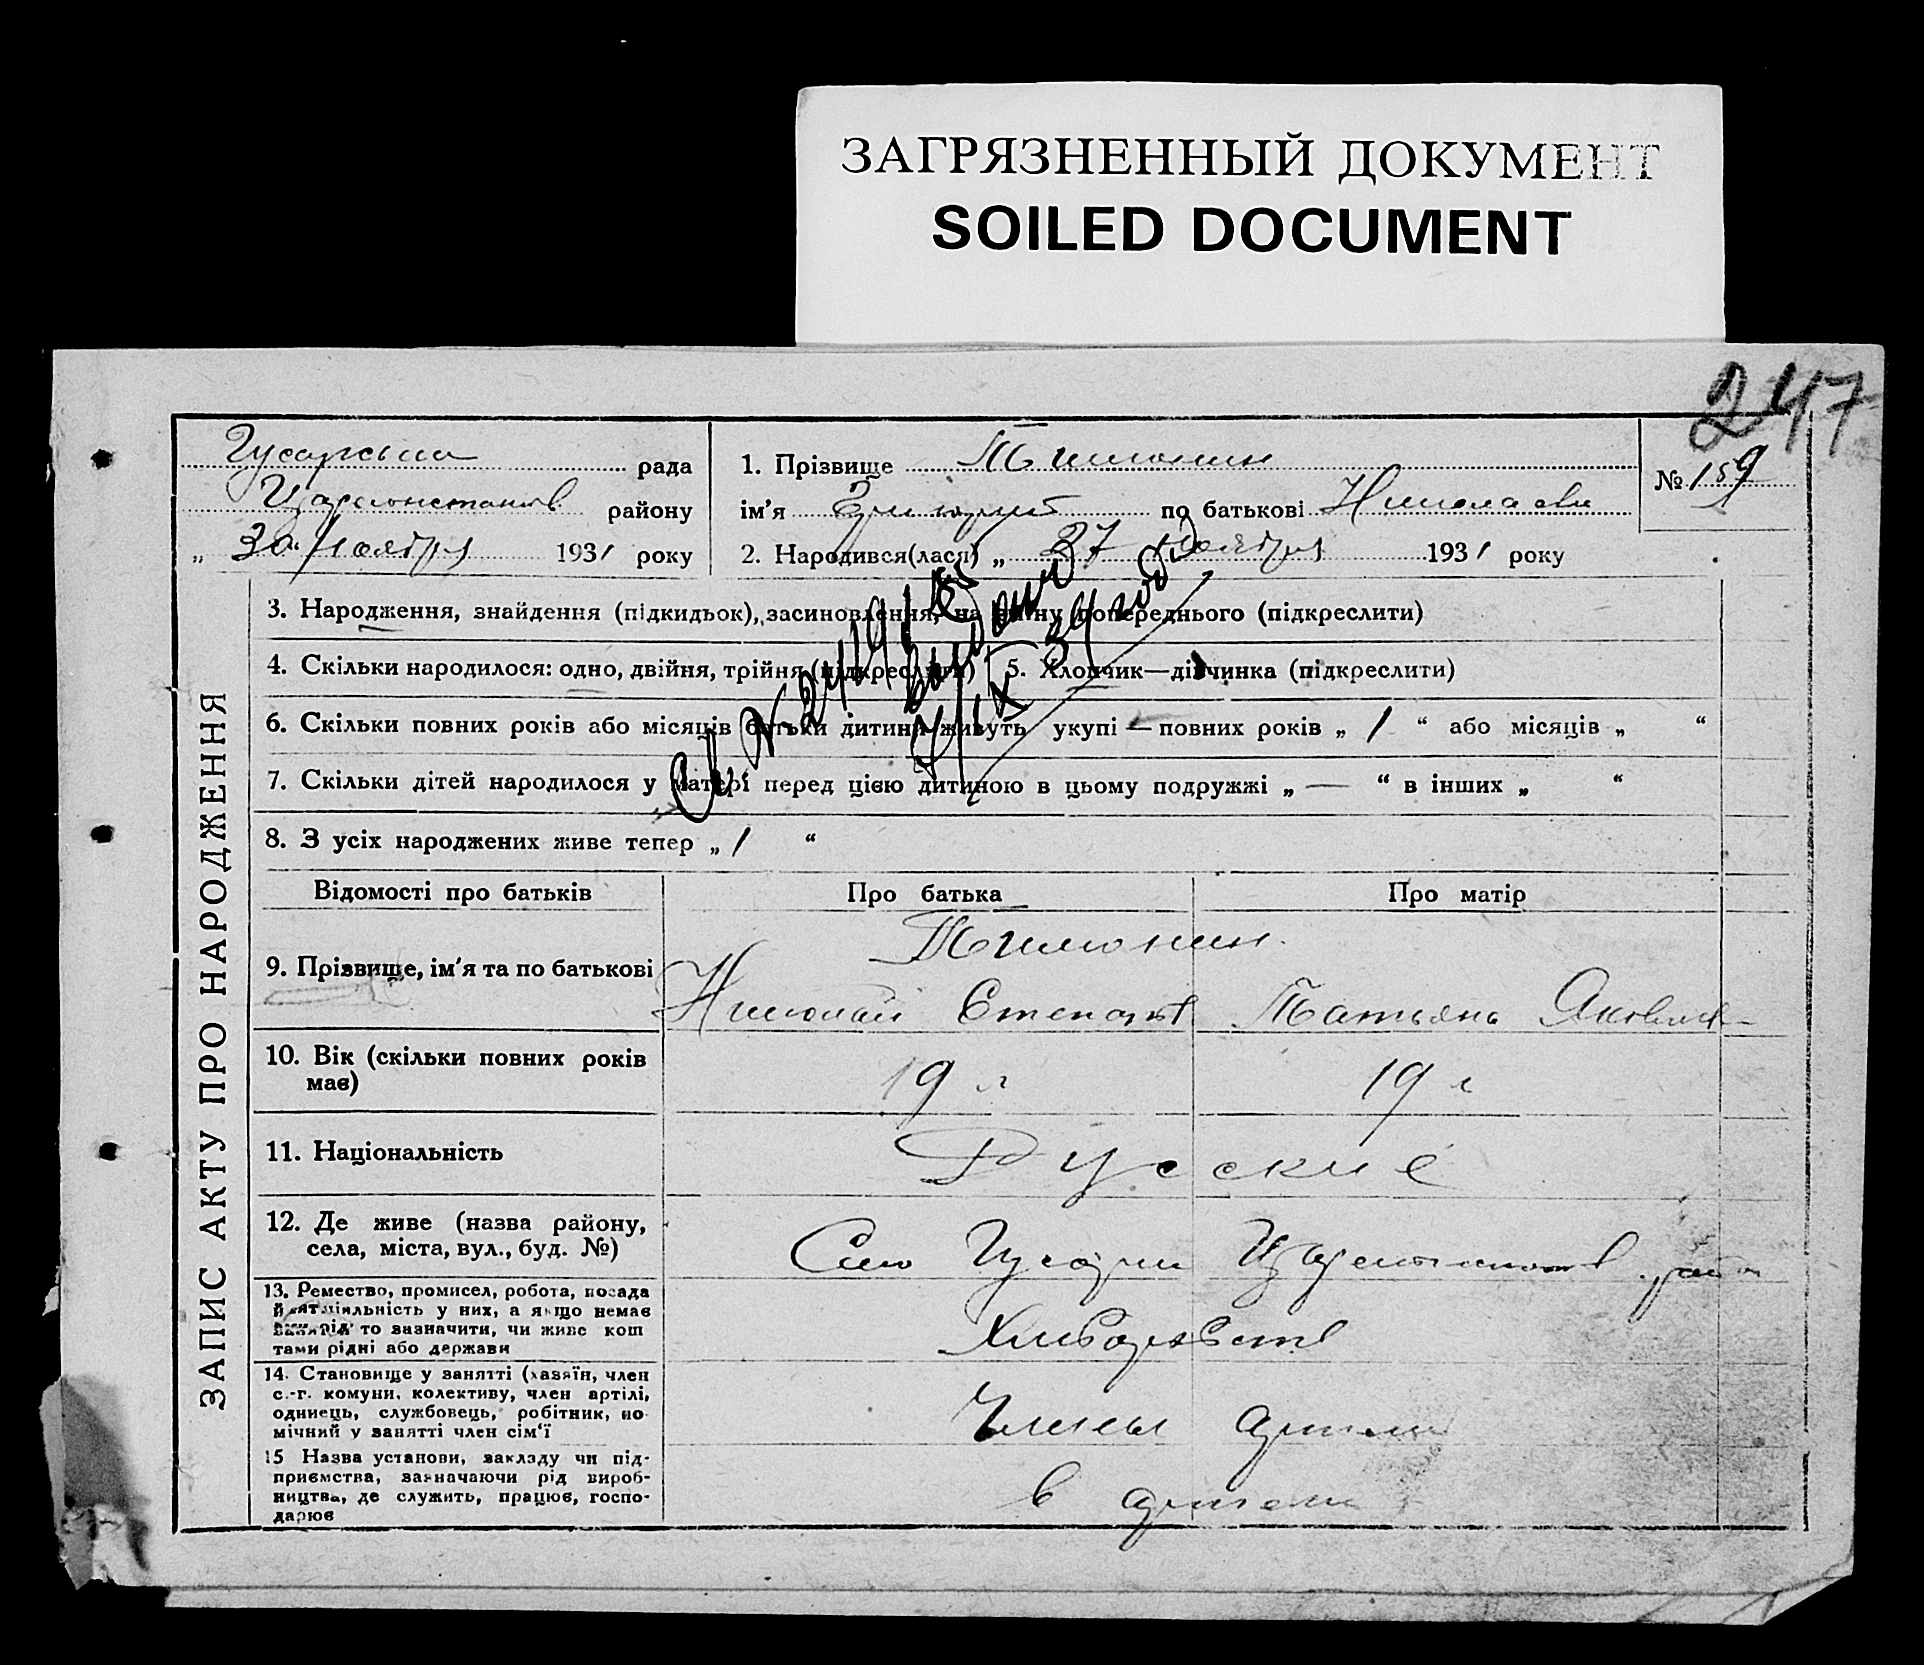 ЗАГРЯЗНЕННЫЙ ДОКУМЕНТ
SOILED DOCUMENT
247
рада
району
„ 30 Ноября 1931 року
1. Прізвище
ім'я по батькові
2. Народився(лася) „ 27 ноября 1931 року
№ 189
ЗАПИС АКТУ ПРО НАРОДЖЕННЯ
3. Народження, знайдення (підкидьок), засиновлення, на зміну попереднього (підкреслити)
4. Скільки народилося: одно, двійня, трійня (підкреслити) 5. Хлопчик—дівчинка (підкреслити)
6. Скільки повних років або місяців батьки дитини живуть укупі — повних років „ 1 “ або місяців „ “
7. Скільки дітей народилося у матері перед цією дитиною в цьому подружжі „ — “ в інших „ “
8. З усіх народжених живе тепер „ 1 “
Відомості про батьків Про батька Про матір
9. Прізвище, ім'я та по батькові
Николай Степанов Татьяна Яковлев
10. Вік (скільки повних років
має)
19 л 19 л
11. Національність
Русские
12. Де живе (назва району,
села, міста, вул., буд. №)
Село
13. Ремество, промисел, робота, посада
й діяльність у них, а якщо немає
то зазначити, чи живе кош
тами рідні або держави
14. Становище у занятті (хазяїн, член
с.-г. комуни, колективу, член артілі,
одинець, службовець, робітник, по
мічний у занятті член сім'ї
Члены артели
15 Назва установи, закладу чи під-
приємства, зазначаючи рід вироб-
ництва, де служить, працює, госпо-
дарює
в артели